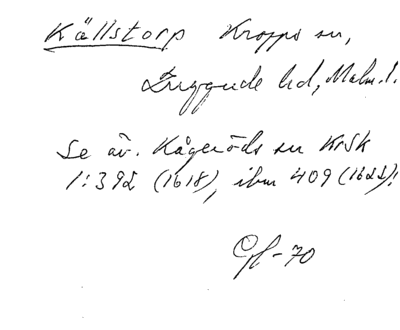 Källstorp Kropps sn,
Luggude hd, Malm. l.
Se äv. Kågeröds sn KrSk
1:392 (1618), ibm 409 (1622)!
Gf-70